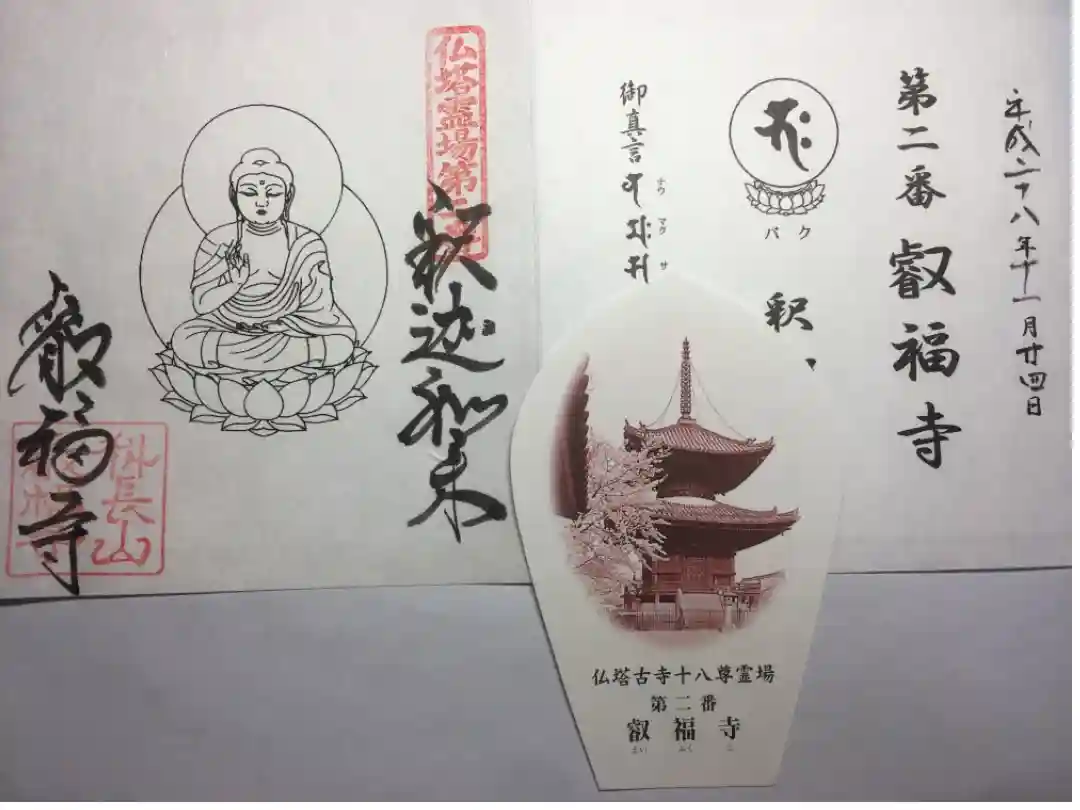 平成二十八年十一月廿四日
第二番 叡福寺
バク
釈
御真言
ナウ マク サ
仏塔霊場第二番
釈迦如来
叡福寺
科長山
仏塔古寺十八尊霊場
第二番
叡福寺
えい ふく じ